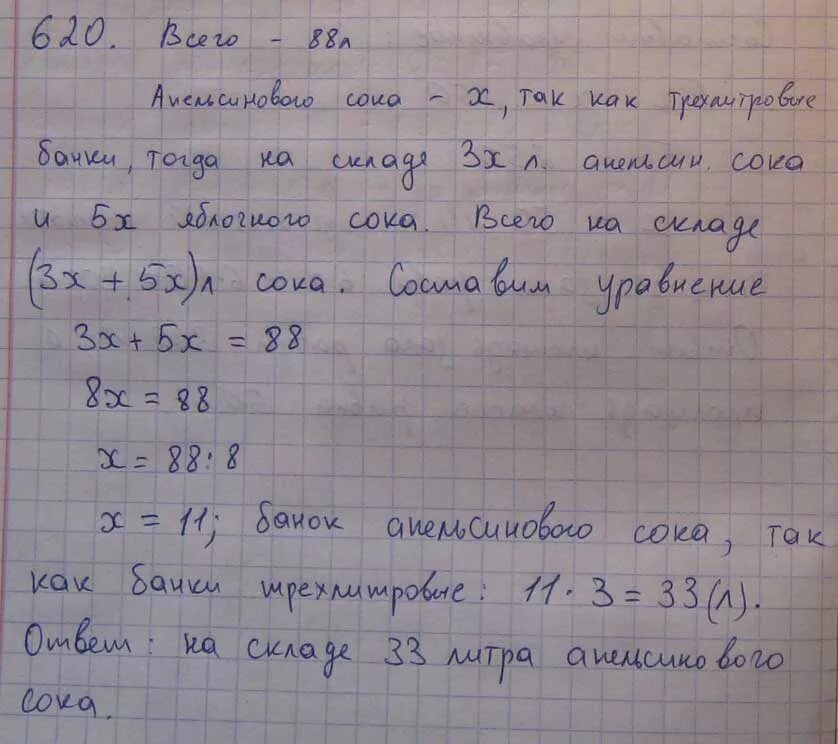 620. Всего - 88л
Апельсинового сока - x, так как трехлитровые
банки, тогда на складе 3x л. апельсин. сока
и 5x яблочного сока. Всего на складе
(3x + 5x)л сока. Составим уравнение
3x + 5x = 88
8x = 88
x = 88:8
x = 11; банок апельсинового сока, так
как банки трехлитровые: 11 · 3 = 33(л).
Ответ: на складе 33 литра апельсинового
сока.